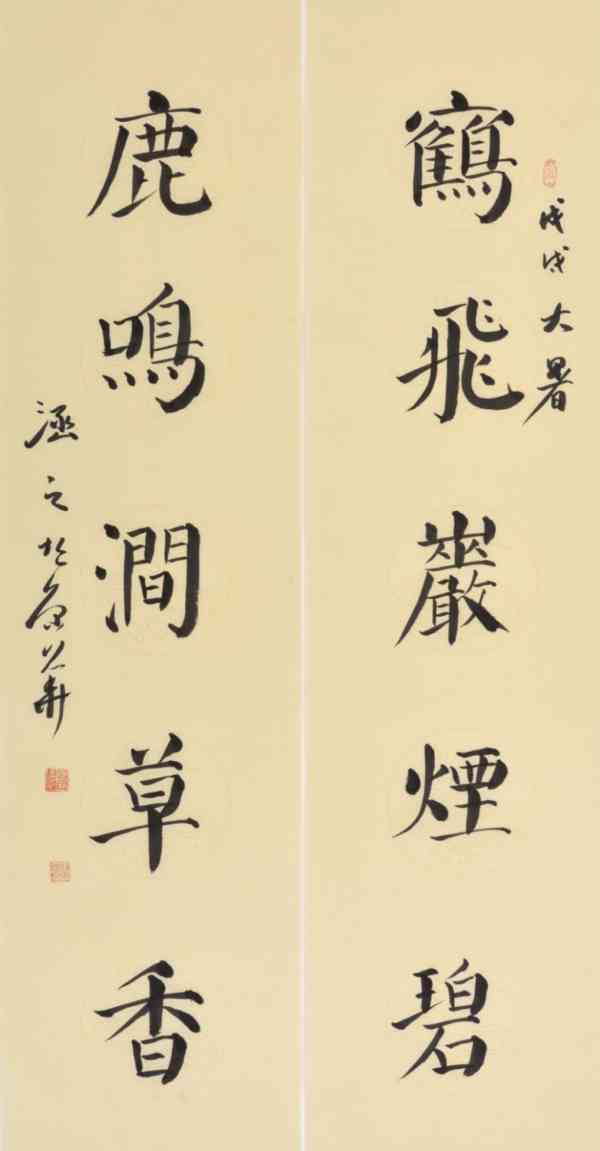 戊戌大暑
鶴飛巖煙碧
鹿鳴澗草香
涵之於京華